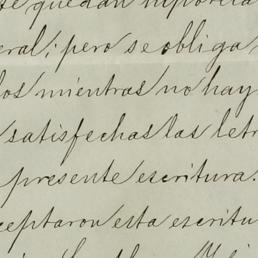 se quedan hipoteca
eral; pero se obliga,
los mientras no hay
satisfechas las letr
presente escritura.
ceptaron esta escritu